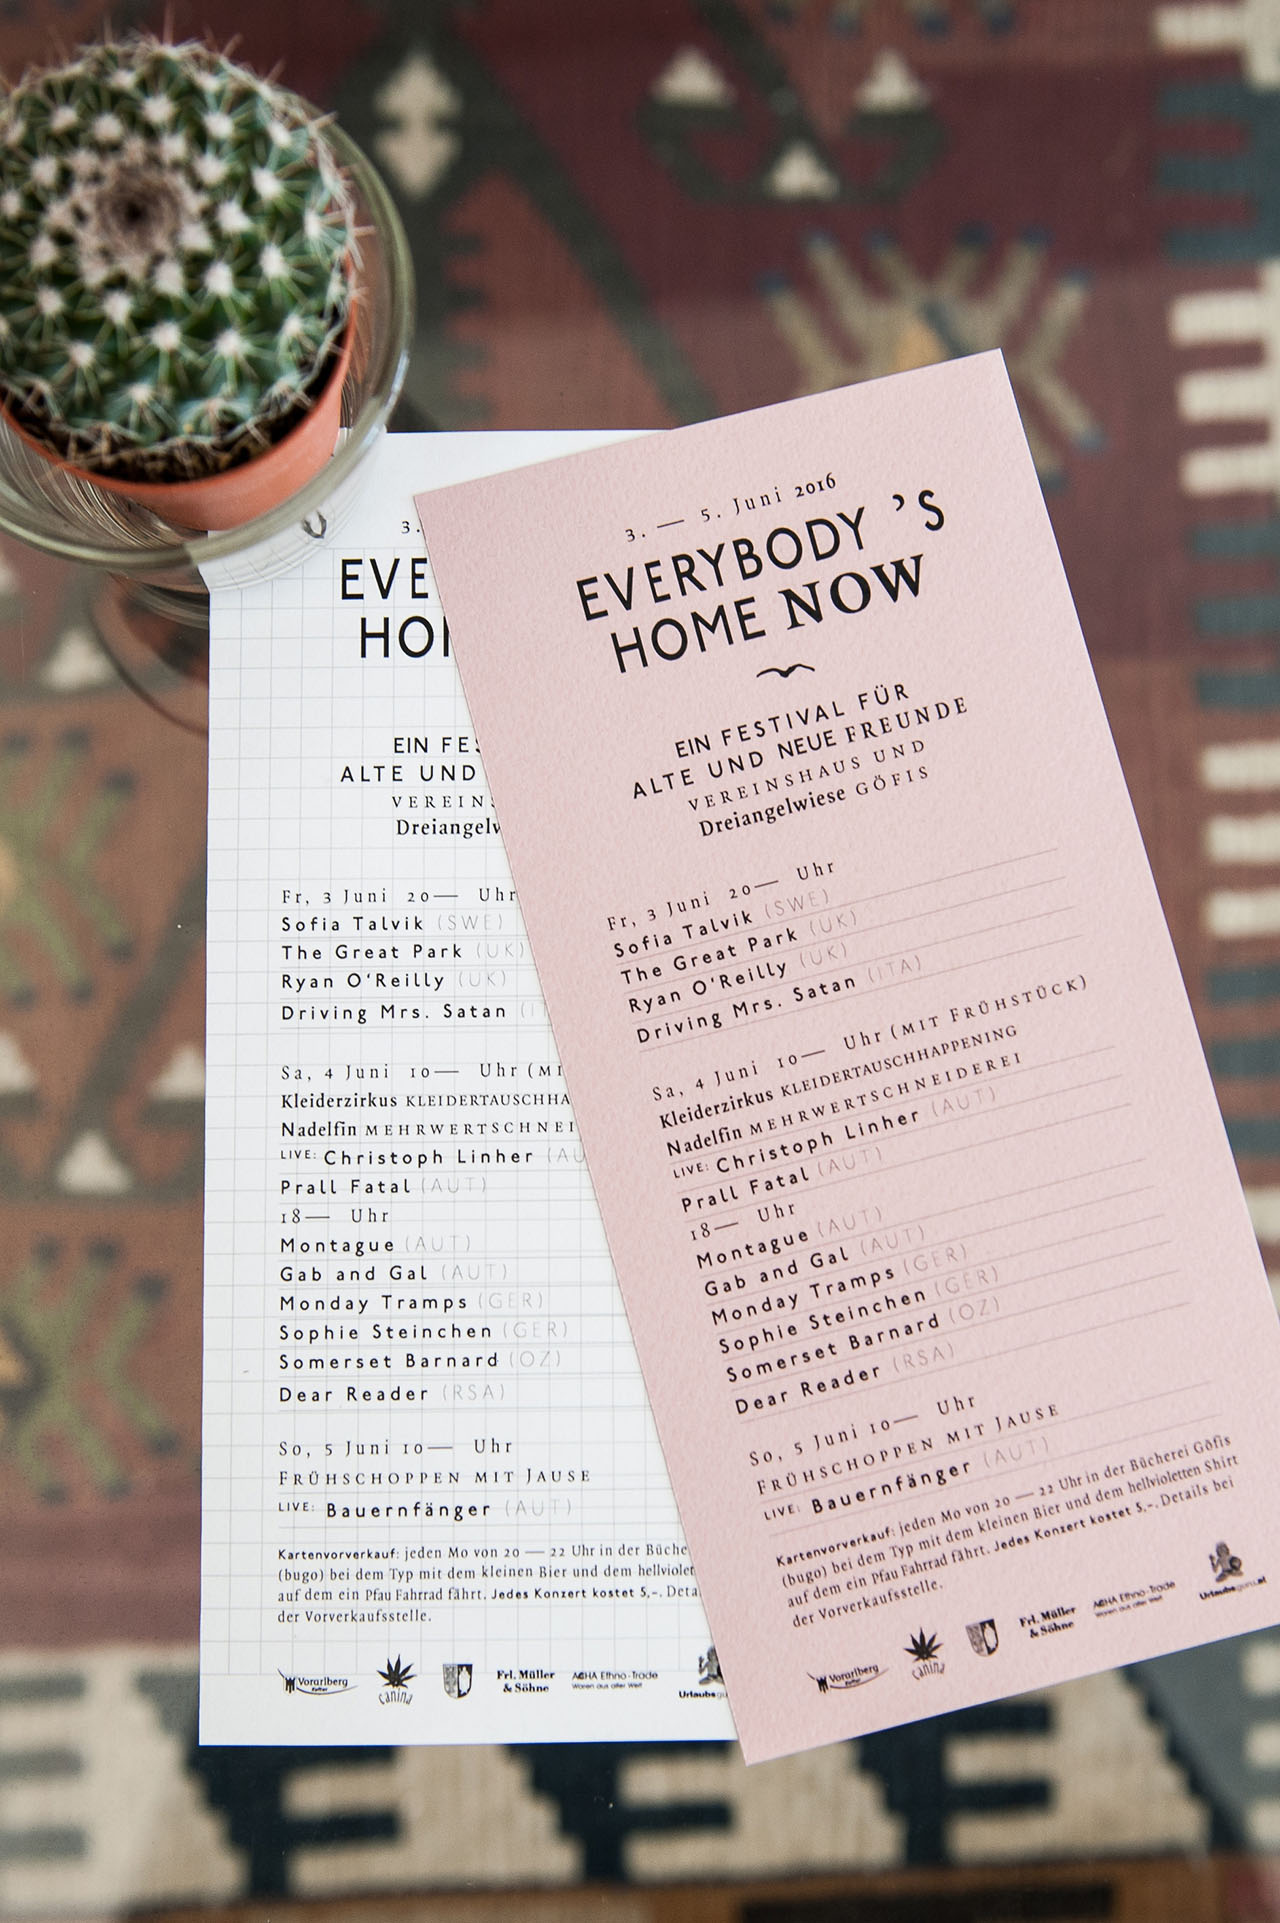 3.
EVE
HO
EIN FES
ALTE UND
VEREINS
Dreiangelw
Fr, 3 Juni 20— Uhr
Sofia Talvik (SWE)
The Great Park (UK)
Ryan O'Reilly (UK)
Driving Mrs. Satan (IT
Sa, 4 Juni 10— Uhr (MI
Kleiderzirkus KLEIDERTAUSCHHA
Nadelfin MEHRWERTSCHNEI
LIVE: Christoph Linher (AU
Prall Fatal (AUT)
18— Uhr
Montague (AUT)
Gab and Gal (AUT)
Monday Tramps (GER)
Sophie Steinchen (GER)
Somerset Barnard (OZ)
Dear Reader (RSA)
So, 5 Juni 10— Uhr
FRÜHSCHOPPEN MIT JAUSE
LIVE: Bauernfänger (AUT)
Kartenvorverkauf: jeden Mo von 20 — 22 Uhr in der Büche
(bugo) bei dem Typ mit dem kleinen Bier und dem hellviolet
auf dem ein Pfau Fahrrad fährt. Jedes Konzert kostet 5,-. Deta
der Vorverkaufsstelle.
Vorarlberg
Kultur
Canina
Frl. Müller
& Söhne
ACHA Ethno-Trade
Waren aus aller Welt
Urlaubsg
3. — 5. Juni 2016
EVERYBODY 'S
HOME NOW
EIN FESTIVAL FÜR
ALTE UND NEUE FREUNDE
VEREINSHAUS UND
Dreiangelwiese GÖFIS
Fr, 3 Juni 20— Uhr
Sofia Talvik (SWE)
The Great Park (UK)
Ryan O'Reilly (UK)
Driving Mrs. Satan (ITA)
Sa, 4 Juni 10— Uhr (MIT FRÜHSTÜCK)
Kleiderzirkus KLEIDERTAUSCHHAPPENING
Nadelfin MEHRWERTSCHNEIDEREI
LIVE: Christoph Linher (AUT)
Prall Fatal (AUT)
18— Uhr
Montague (AUT)
Gab and Gal (AUT)
Monday Tramps (GER)
Sophie Steinchen (GER)
Somerset Barnard (OZ)
Dear Reader (RSA)
So, 5 Juni 10— Uhr
FRÜHSCHOPPEN MIT JAUSE
LIVE: Bauernfänger (AUT)
Kartenvorverkauf: jeden Mo von 20 — 22 Uhr in der Bücherei Göfis
(bugo) bei dem Typ mit dem kleinen Bier und dem hellvioletten Shirt
auf dem ein Pfau Fahrrad fährt. Jedes Konzert kostet 5,-. Details bei
der Vorverkaufsstelle.
Vorarlberg
Kultur
Canina
Frl. Müller
& Söhne
ACHA Ethno-Trade
Waren aus aller Welt
Urlaubsguru.at